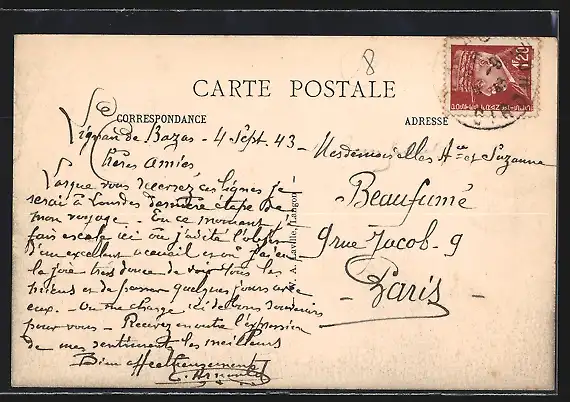 8
CARTE POSTALE
CORRESPONDANCE
ADRESSE
1F20
Le
de Bazas - 4 Sept 43 -
Chères Amies
Lorsque vous recevrez ces lignes je
serai à Lourdes dernière étape de
mon voyage - En ce moment
fais escale ici où j'ai été l'objet
d'un excellent accueil et où j'ai eu
la joie très douce de voir tous les
miens et de passer quelques jours avec
eux. - On me charge ici de bons souvenirs
pour vous - Recevez en outre l'expression
de mes sentiments les meilleurs
Bien affectueusement
Laville, Langon
Mesdemoiselles Ace et Suzanne
Beaufumé
9 rue Jacob - 9
- Paris -